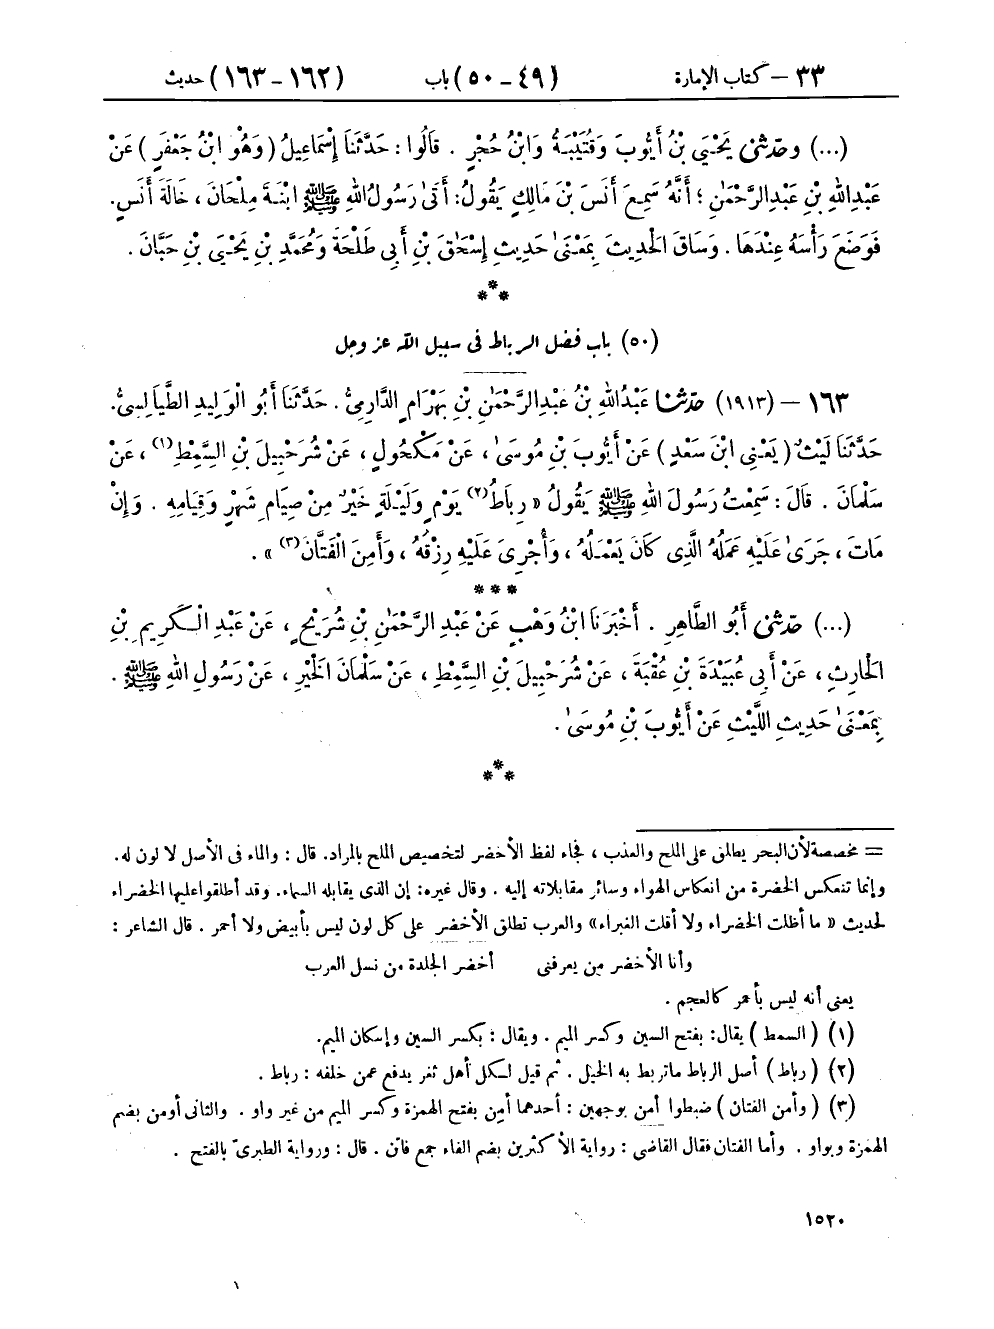 ٣٣ – كتاب الإمارة (٤٩-٥٠) باب (١٦٢-١٦٣) حديث
(...) وحَدَّثَنِي يَحْيَىٰ بْنُ أَيُّوبَ وَقُتَيْبَةُ وَابْنُ حُجْرٍ . قَالُوا : حَدَّثَنَا إِسْمَاعِيلُ (وَهُوَ ابْنُ جَعْفَرٍ) عَنْ
عَبْدِاللهِ بْنِ عَبْدِالرَّحْمَٰنِ ؛ أَنَّهُ سَمِعَ أَنَسَ بْنَ مَالِكٍ يَقُولُ: أَتَىٰ رَسُولُ اللهِ ﷺ ابْنَةَ مِلْحَانَ ، خَالَةَ أَنَسٍ.
فَوَضَعَ رَأْسَهُ عِنْدَهَا . وَسَاقَ الْحَدِيثَ بِمَعْنَىٰ حَدِيثِ إِسْحَٰقَ بْنِ أَبِي طَلْحَةَ وَمُحَمَّدِ بْنِ يَحْيَىٰ بْنِ حَبَّانَ .
***
(٥٠) باب فضل الرباط فى سبيل الله عز وجل
١٦٣ – (١٩١٣) حَدَّثَنَا عَبْدُاللهِ بْنُ عَبْدِالرَّحْمَٰنِ بْنِ بَهْرَامٍ الدَّارِمِيُّ . حَدَّثَنَا أَبُو الْوَلِيدِ الطَّيَالِسِيُّ.
حَدَّثَنَا لَيْثٌ (يَعْنِي ابْنَ سَعْدٍ) عَنْ أَيُّوبَ بْنِ مُوسَىٰ ، عَنْ مَكْحُولٍ ، عَنْ شُرَحْبِيلَ بْنِ السَّمِطِ(١) ، عَنْ
سَلْمَانَ . قَالَ : سَمِعْتُ رَسُولَ اللهِ ﷺ يَقُولُ « رِبَاطُ(٢) يَوْمٍ وَلَيْلَةٍ خَيْرٌ مِنْ صِيَامِ شَهْرٍ وَقِيَامِهِ . وَإِنْ
مَاتَ ، جَرَىٰ عَلَيْهِ عَمَلُهُ الَّذِي كَانَ يَعْمَلُهُ ، وَأُجْرِيَ عَلَيْهِ رِزْقُهُ ، وَأَمِنَ الْفَتَّانَ(٣) » .
***
(...) حَدَّثَنِي أَبُو الطَّاهِرِ . أَخْبَرَنَا ابْنُ وَهْبٍ عَنْ عَبْدِ الرَّحْمَٰنِ بْنِ شُرَيْحٍ ، عَنْ عَبْدِ الْكَرِيمِ بْنِ
الْحَارِثِ ، عَنْ أَبِي عُبَيْدَةَ بْنِ عُقْبَةَ ، عَنْ شُرَحْبِيلَ بْنِ السَّمِطِ ، عَنْ سَلْمَانَ الْخَيْرِ ، عَنْ رَسُولِ اللهِ ﷺ .
بِمَعْنَىٰ حَدِيثِ اللَّيْثِ عَنْ أَيُّوبَ بْنِ مُوسَىٰ .
***
= مخصصة لأن البحر يطلق على الملح والعذب ، فجاء لفظ الأخضر لتخصيص الملح بالمراد. قال : والماء فى الأصل لا لون له.
وإنما تنعكس الخضرة من انعكاس الهواء وسائر مقابلاته إليه . وقال غيره: إن الذى يقابله السماء. وقد أطلقوا عليها الخضراء
لحديث « ما أظلت الخضراء ولا أقلت الغبراء» والعرب تطلق الأخضر على كل لون ليس بأبيض ولا أحمر . قال الشاعر :
وأنا الأخضر من يعرفنى أخضر الجلدة من نسل العرب
يعنى أنه ليس بأحمر كالعجم .
(١) (السمط) يقال: بفتح السين وكسر الميم . ويقال : بكسر السين وإسكان الميم.
(٢) (رباط) أصل الرباط ما تربط به الخيل . ثم قيل لكل أهل ثغر يدفع عمن خلفه : رباط .
(٣) (وأمن الفتان) ضبطوا أمن بوجهين : أحدهما أمِن بفتح الهمزة وكسر الميم من غير واو . والثانى أومن بضم
الهمزة وبواو . وأما الفتان فقال القاضى : رواية الأكثرين بضم الفاء جمع فاتن . قال : ورواية الطبرىّ بالفتح .
١٥٢٠
١